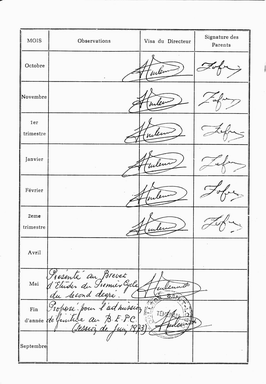 MOIS Observations Visa du Directeur Signature des Parents
Octobre
Novembre
1er trimestre
Janvier
Février
2eme trimestre
Avril
Mai
Présenté au Brevet
d'Etudes du Premier Cycle
du second degré.
Fin d'année
Proposé pour l'admission
au B.E.P.C
(session de Juin 1973)
Septembre